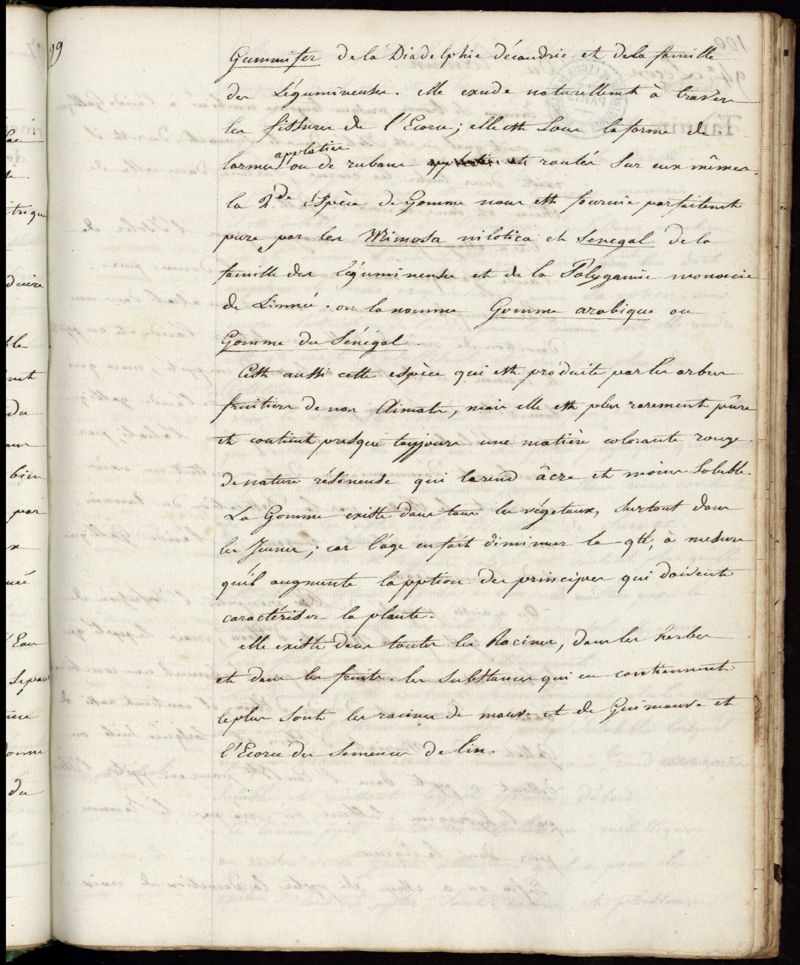 99
Gummifer de la Diadelphie décandrie et de la famille
des Légumineuses. Elle exude naturellement à travers
les fissures de l'Ecorce; elle est sous la forme de
applaties
larmes ou de rubans et roulés sur eux mêmes.
la 2de espèce de Gomme nous est fournie parfaitement
pure par les Mimosa nilotica et Senegal de la
famille des Légumineuses et de la Polygamie monoecie
de Linnée. on la nomme Gomme arabique ou
Gomme du Sénégal.
C'est aussi cette espèce qui est produite par les arbres
fruitiers de nos climats, mais elle est plus rarement pûre
et contient presque toujours une matière colorante rouge
de nature résineuse qui la rend âcre et moins soluble.
La Gomme existe dans tous les végétaux, surtout dans
les Jeunes; car l'âge en fait diminuer la qtté, à mesure
qu'il augmente la pption des principes qui doivent
caractériser la plante.
Elle existe dans toutes les Racines, dans les herbes
et dans les fruits. les substances qui en contiennent
le plus sont les racines de mauve et de Guimauve et
l'Ecorce des semences de lin.